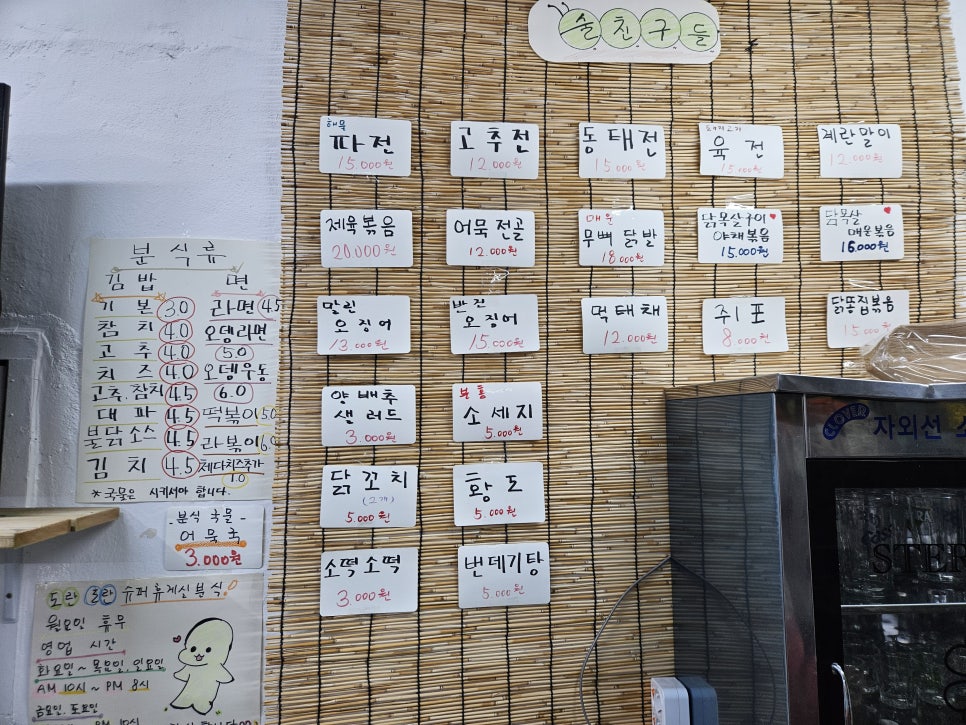 술친구들
해물
파전
15.000원
고추전
12.000원
동태전
15.000원
돼지고기
육전
15.000원
계란말이
12.000원
제육볶음
20.000원
어묵전골
12.000원
매운
무뼈 닭발
18.000원
닭목살구이
야채볶음
15.000원
닭목살
매운볶음
16.000원
말린
오징어
13.000원
반건
오징어
15.000원
먹태채
12.000원
쥐포
8.000원
닭똥집볶음
15.000원
양배추
샐러드
3.000원
분홍
소세지
5.000원
닭꼬치
5.000원
황도
5.000원
소떡소떡
3.000원
번데기탕
5.000원
분식류
김밥
기본 3.0
참치 4.0
고추 4.0
치즈 4.0
고추.참치 4.5
대파 4.5
불닭소스 4.5
김치 4.5
면
라면 4.5
오뎅라면
5.0
오뎅우동
6.0
떡볶이 5.0
라볶이 6.0
체다치즈추가
1.0
*국물은 시키셔야 합니다.
-분식 국물-
어묵국
3.000원
도란 도란 슈퍼휴게실분식!
월요일 휴무
영업 시간
화요일~목요일.일요일
AM 10시~PM 8시
금요일.토요일
CLOVER
자외선
STER